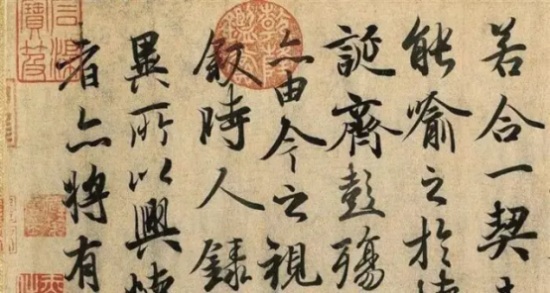 若合一契
能喻之於懷
誕齊彭殤
亦由今之視
敘時人錄
異所以興懷
者亦將有